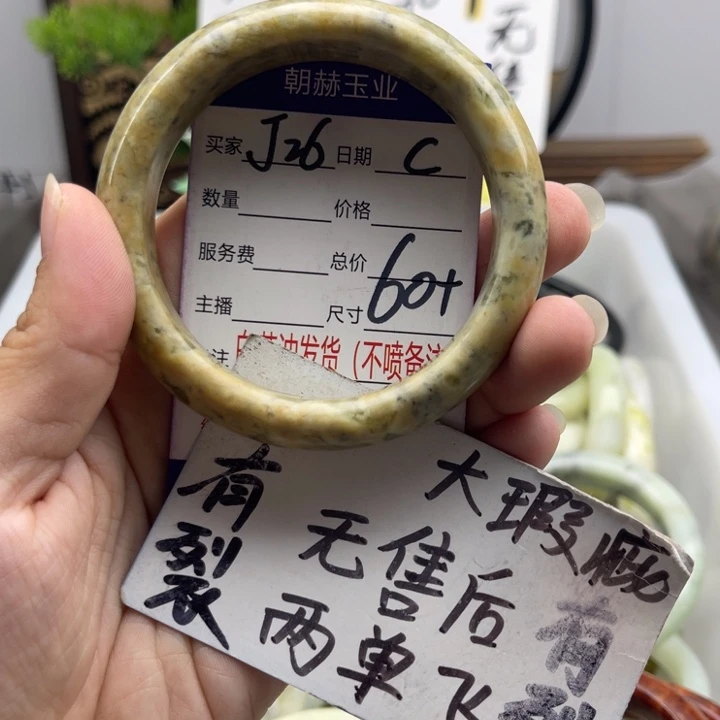 无售
朝赫玉业
买家 J26 日期 C
数量 价格
服务费 总价
主播 尺寸 60+
注 白菜冲发货(不喷备注
有裂
大瑕疵
无售后
两单飞
有裂